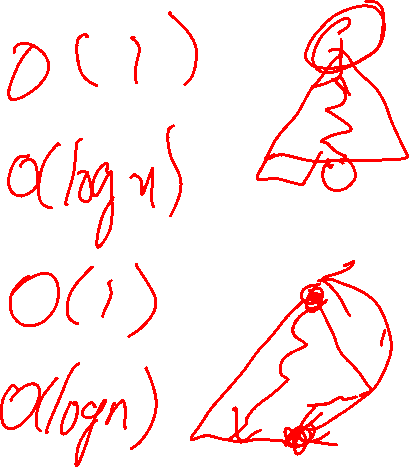 O(1)
O(log n)
O(1)
O(log n)